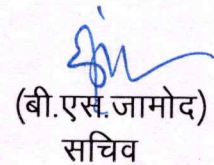 (बी.एस.जामोद)
सचिव